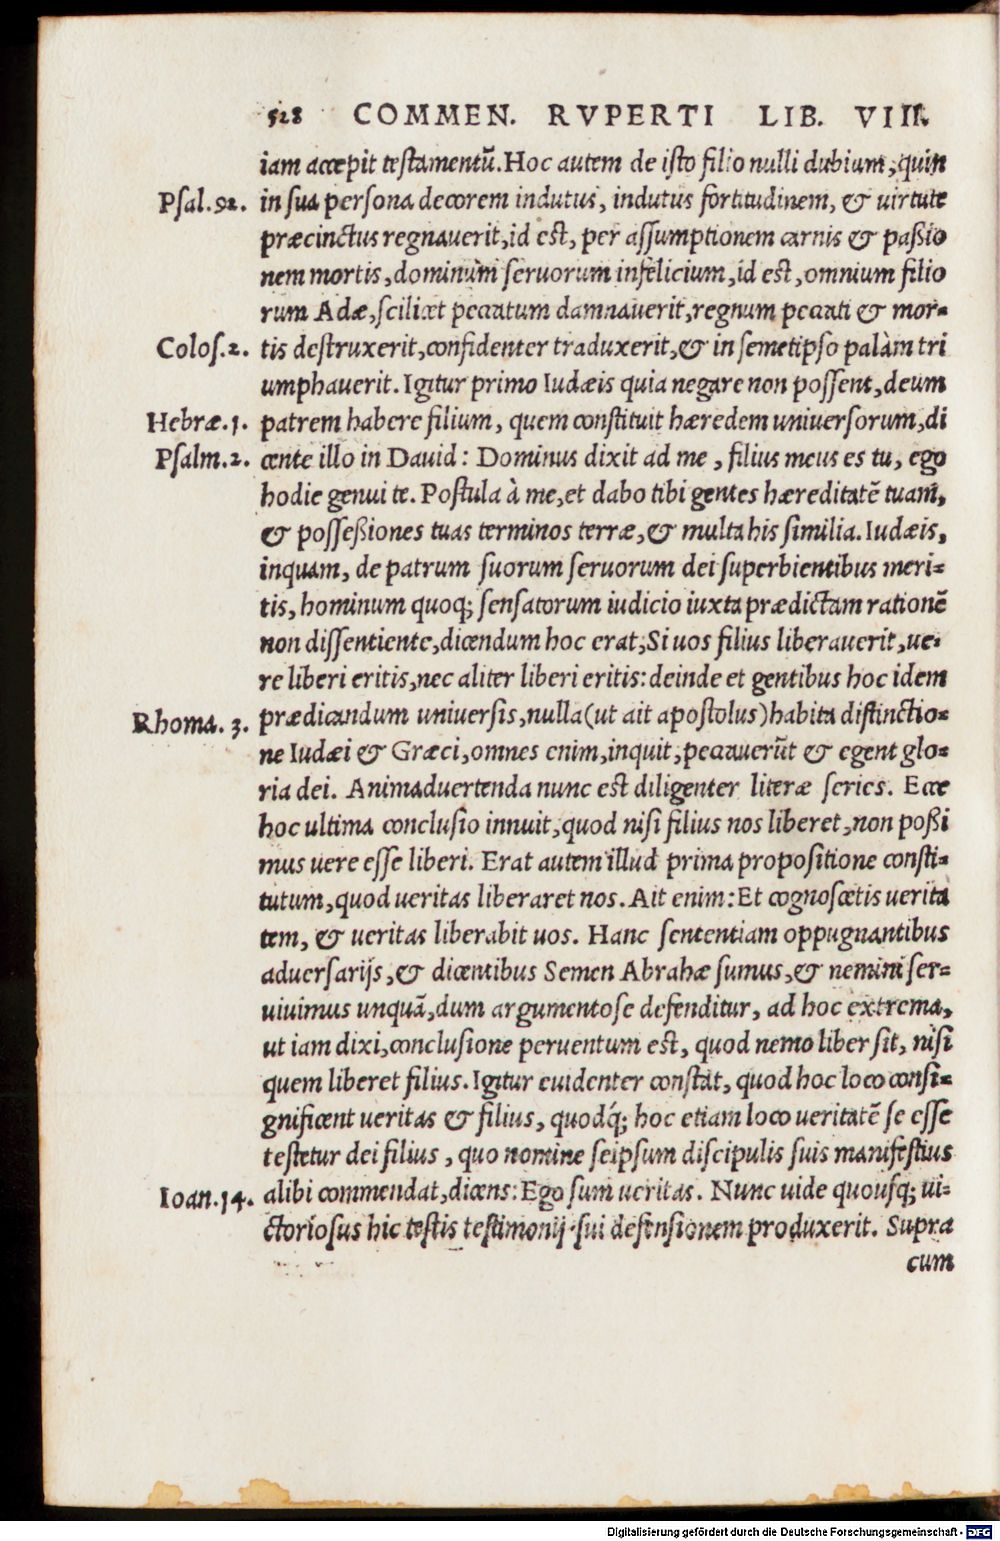 528 COMMEN. RVPERTI LIB. VIII.
iam accepit testamentũ. Hoc autem de isto filio nulli dubium, quin
Psal. 92. in sua persona decorem indutus, indutus fortitudinem, & uirtute
præcinctus regnauerit, id est, per assumptionem carnis & paßio
nem mortis, dominum seruorum infelicium, id est, omnium filio
rum Adæ, scilicet peccatum damnauerit, regnum peccati & mor-
Colos. 2. tis destruxerit, confidenter traduxerit, & in semetipso palàm tri
umphauerit. Igitur primo Iudæis quia negare non possent, deum
Hebræ. 1. patrem habere filium, quem constituit hæredem uniuersorum, di
Psalm. 2. cente illo in Dauid: Dominus dixit ad me, filius meus es tu, ego
hodie genui te. Postula à me, et dabo tibi gentes hæreditatẽ tuam,
& posseßiones tuas terminos terræ, & multa his similia. Iudæis,
inquam, de patrum suorum seruorum dei superbientibus meri-
tis, hominum quoq; sensatorum iudicio iuxta prædictam rationẽ
non dissentiente, dicendum hoc erat; Si uos filius liberauerit, ue-
re liberi eritis, nec aliter liberi eritis: deinde et gentibus hoc idem
Rhoma. 3. prædicandum uniuersis, nulla (ut ait apostolus) habita distinctio-
ne Iudæi & Græci, omnes enim, inquit, peccauerũt & egent glo-
ria dei. Animaduertenda nunc est diligenter literæ series. Ecce
hoc ultima conclusio innuit, quod nisi filius nos liberet, non poßi
mus uere esse liberi. Erat autem illud prima propositione consti-
tutum, quod ueritas liberaret nos. Ait enim: Et cognoscetis uerita
tem, & ueritas liberabit uos. Hanc sententiam oppugnantibus
aduersarijs, & dicentibus Semen Abrahæ sumus, & nemini ser-
uiuimus unquã, dum argumentose defenditur, ad hoc extrema,
ut iam dixi, conclusione peruentum est, quod nemo liber sit, nisi
quem liberet filius. Igitur euidenter constat, quod hoc loco consi-
gnificent ueritas & filius, quodq́; hoc etiam loco ueritatẽ se esse
testetur dei filius, quo nomine seipsum discipulis suis manifestius
Ioan. 14. alibi commendat, dicens: Ego sum ueritas. Nunc uide quousq; ui-
ctoriosus hic testis testimonij sui defensionem produxerit. Supra
cum
Digitalisierung gefördert durch die Deutsche Forschungsgemeinschaft - DFG